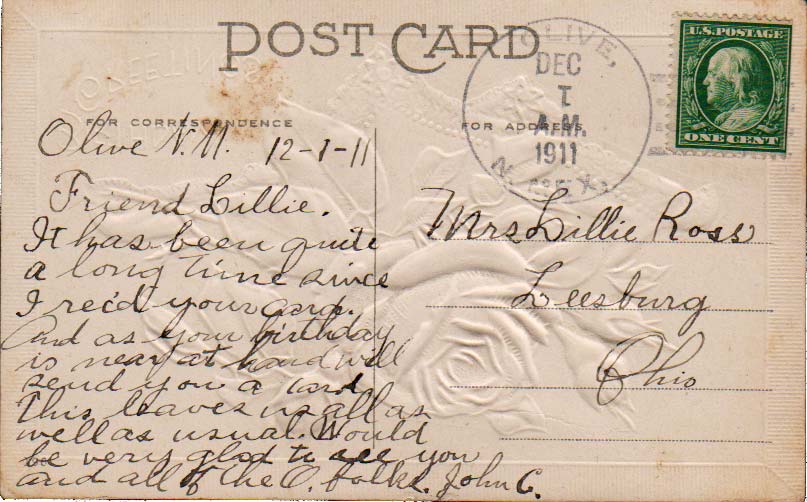 POST CARD
OLIVE,
DEC
1
A.M.
1911
N. MEX.
U.S. POSTAGE
ONE CENT
FOR CORRESPONDENCE
FOR ADDRESS
Olive N.M. 12-1-11
Friend Lillie.
It has been quite
a long time since
I rec'd your card.
And as your birthday
is near at hand will
send you a card
This leaves us all as
well as usual. Would
be very glad to see you
and all of the O. folks. John C.
Mrs Lillie Ross
Leesburg
Ohio